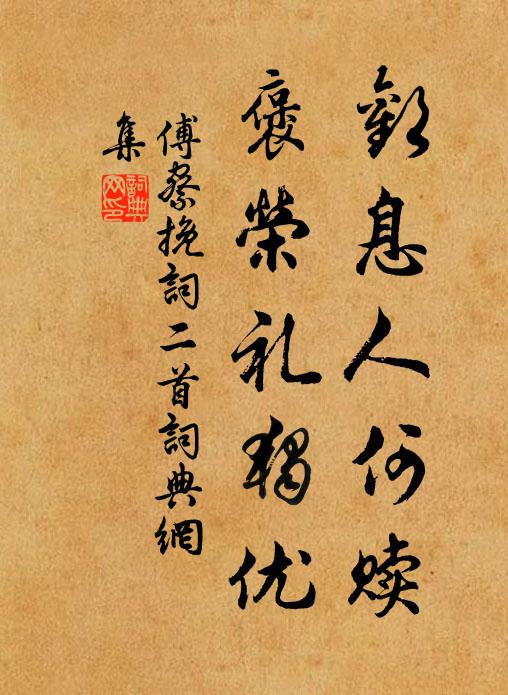 歎息人何赎
褒榮礼獨优
傅察挽詞二首詞典網
集
詞典
网印